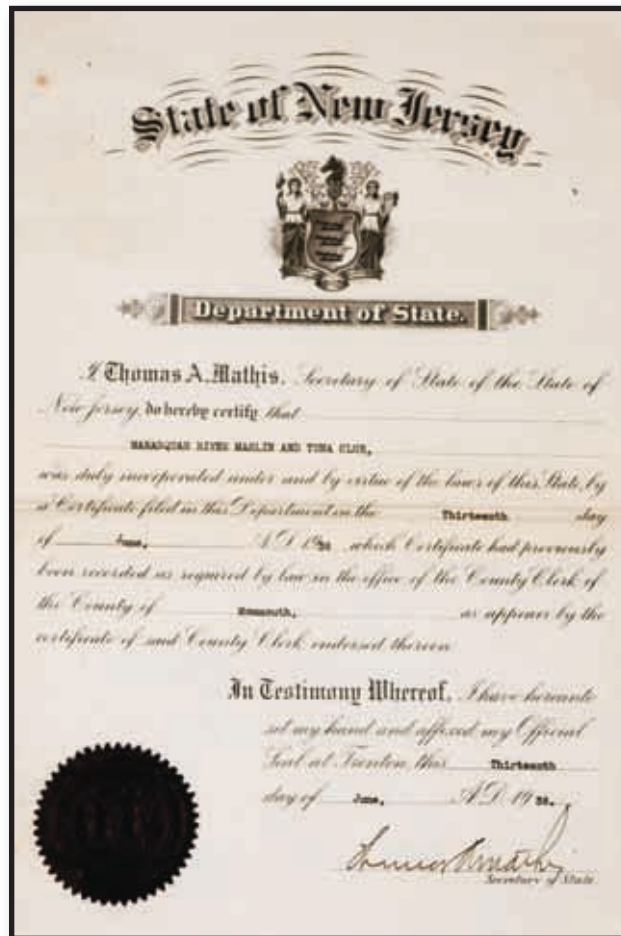 State of New Jersey
Department of State.
I Thomas A. Mathis, Secretary of State of the State of
New Jersey, do hereby certify that
MANASQUAN RIVER MARLIN AND TUNA CLUB,
was duly incorporated under and by virtue of the laws of this State, by
a Certificate filed in this Department on the Thirteenth day
of June, A.D. 19 which Certificate had previously
been recorded as required by law in the office of the County Clerk of
the County of Monmouth, as appears by the
certificate of said County Clerk endorsed thereon
In Testimony Whereof, I have hereunto
set my hand and affixed my Official
Seal at Trenton, this Thirteenth
day of June, A.D. 19
Thomas A Mathis
Secretary of State.